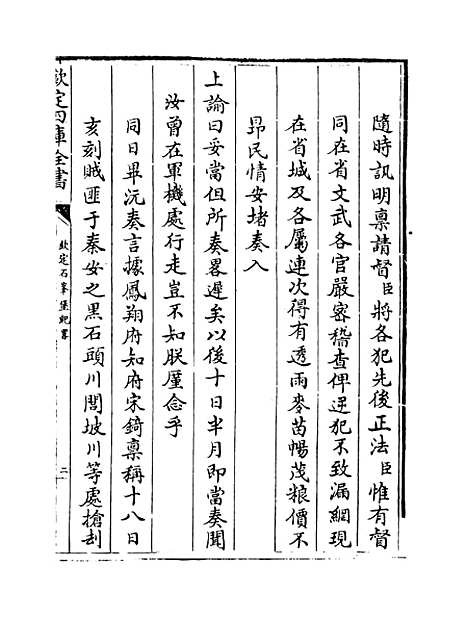 隨時訊明稟請督臣將各犯先後正法臣惟有督
同在省文武各官嚴密稽查俾逆犯不致漏網現
在省城及各屬連次得有透雨麥苗暢茂粮價不
昻民情安堵奏入
上諭曰妥當但所奏畧遲矣以後十日半月即當奏聞
汝曾在軍機處行走豈不知朕廑念乎
同日畢沅奏言據鳳翔府知府宋錡稟稱十八日
亥刻賊匪于秦安之黑石頭川閻坡川等處搶刦
欽定四庫全書
欽定石峯堡紀畧
二